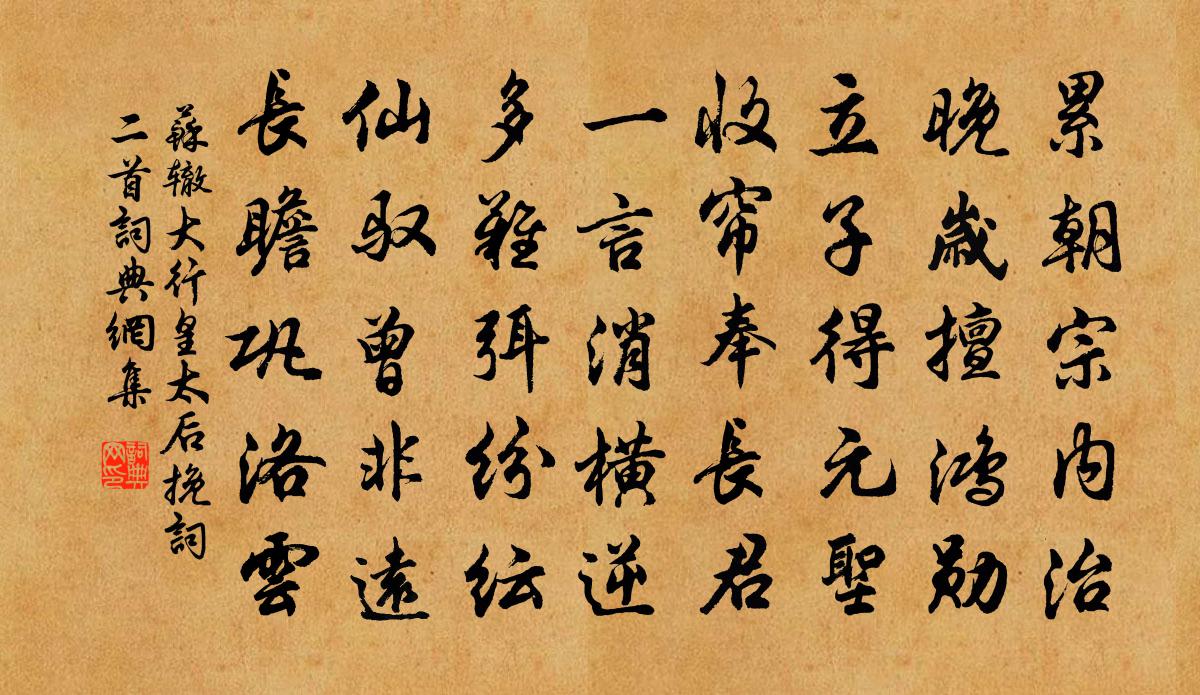 累朝宗内治
晚歲擅鴻勛
立子得元聖
收帘奉長君
一言消橫逆
多難弭紛纭
仙驭曾非遠
長瞻巩洛雲
蘇辙大行皇太后挽詞
二首詞典網集
詞典
网印